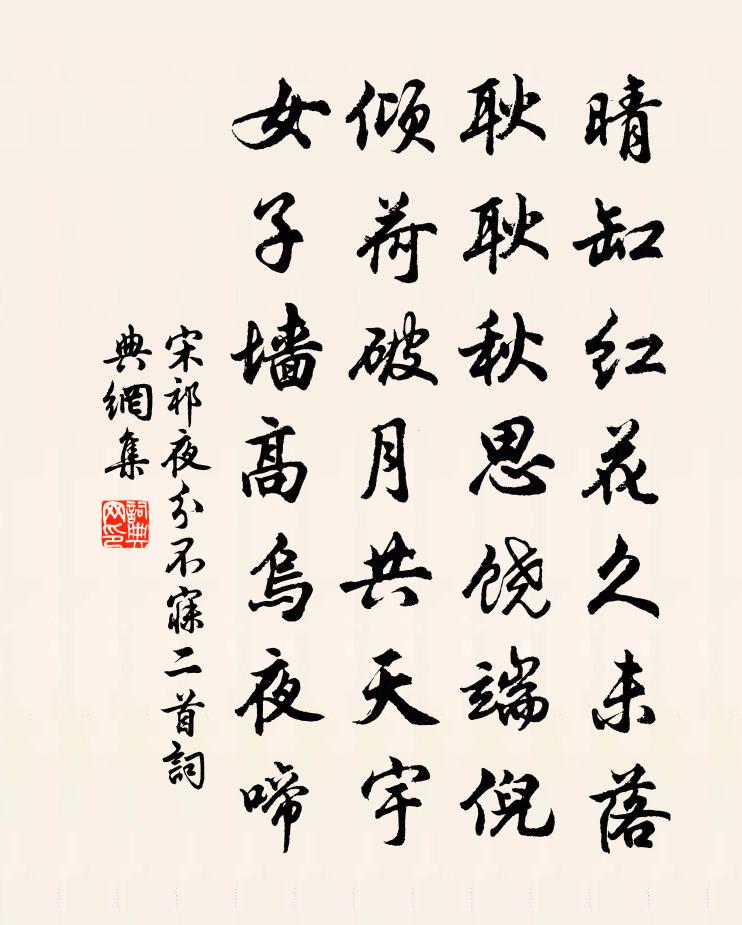 晴缸红花久未落
耿耿秋思饶端倪
倾荷破月共天宇
女子墙高乌夜啼
宋祁夜分不寐二首詞
典網集
詞典网印